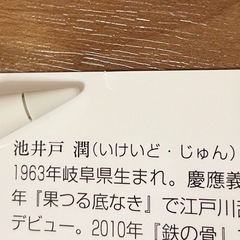 池井戸 潤(いけいど・じゅん)
1963年岐阜県生まれ。慶應義
年『果つる底なき』で江戸川
デビュー。2010年『鉄の骨』